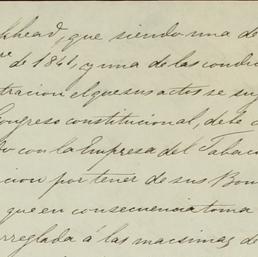 khead, que siendo una de
re de 1841, y una de las condi
tracion el que sus actos se su
Congreso constitucional, debe
do con la Empresa del Tabac
cion por tener de sus Bon
que en consecuencia toma
rreglada á las macsimas de